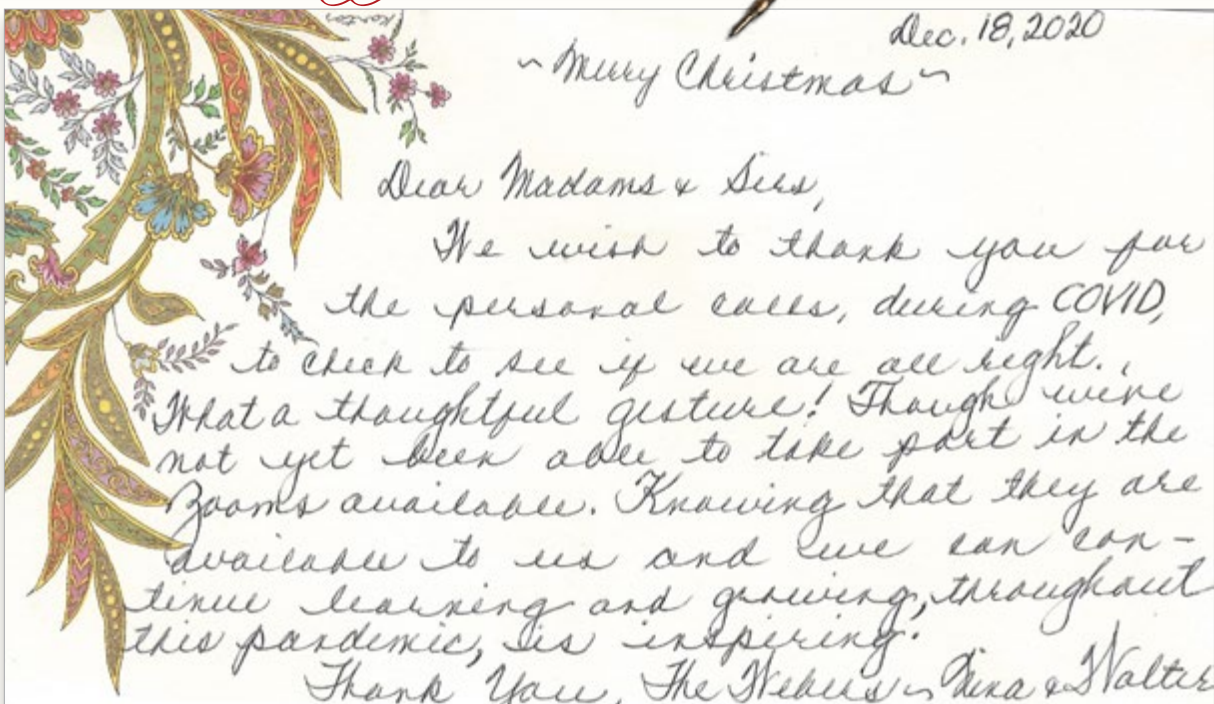 Dec. 18, 2020
~ Merry Christmas ~
Dear Madams & Sirs,
We wish to thank you for
the personal calls, during COVID,
to check to see if we are all right.
What a thoughtful gesture! Though we've
not yet been able to take part in the
Zooms available. Knowing that they are
available to us and we can con-
tinue learning and growing, throughout
this pandemic, is inspiring.
Thank You, The Webers ~ & Walter